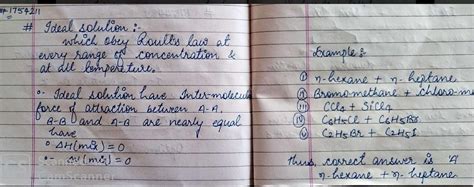 #1754211
# Ideal solution :-
which obey Roult's law at
every range of concentration &
at all temperature.
Ideal solution have Inter-molecular
force of attraction between A-A,
B-B and A-B are nearly equal
have
ΔH(mix) = 0
ΔV(mix) = 0
CamScanner
Example :
(i) n-hexane + n-heptane
(ii) Bromomethane + chloro-me
(iii) CCl4 + SiCl4
(iv) C6H5Cl + C6H5Br
(v) C2H5Br + C2H5I
thus, correct answer is 'A
n-hexane + n-heptane